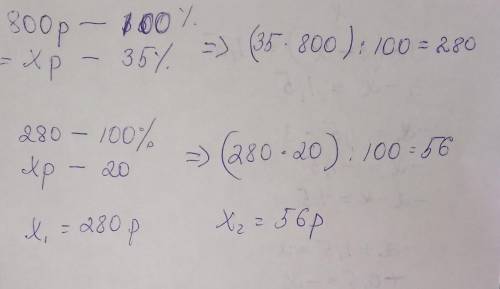 800р — 100%
= хр — 35% => (35 · 800) : 100 = 280
280 — 100%
хр — 20 => (280 · 20) : 100 = 56
x₁ = 280р x₂ = 56р